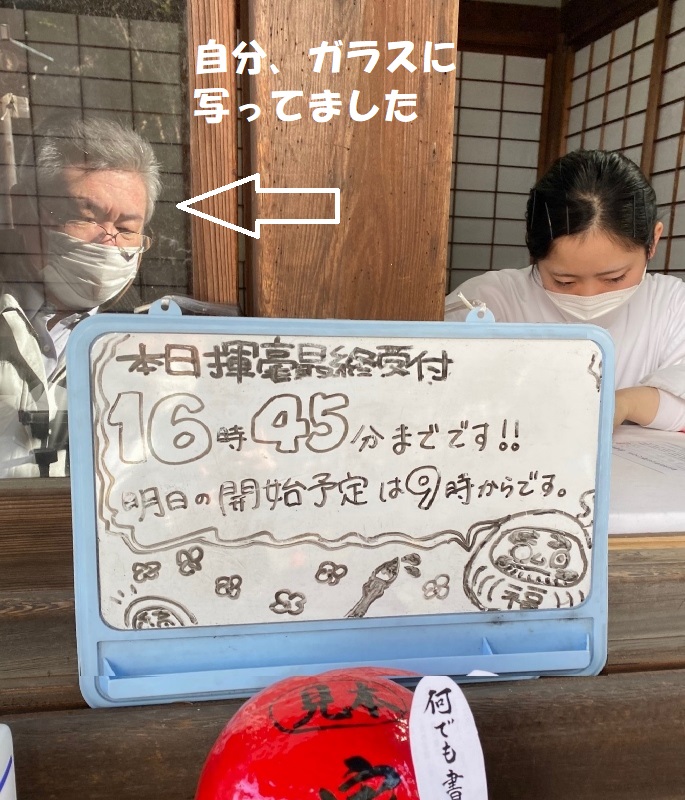 自分、ガラスに
写ってました
本日揮毫最終受付
16時45分までです!!
明日の開始予定は9時からです。
福
見本
何でも書